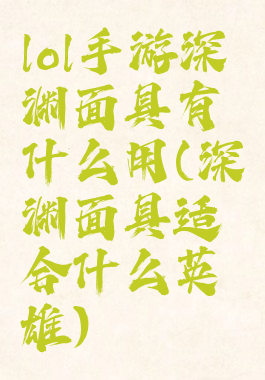 lol手游深
渊面具有
什么用(深
渊面具适
合什么英
雄)